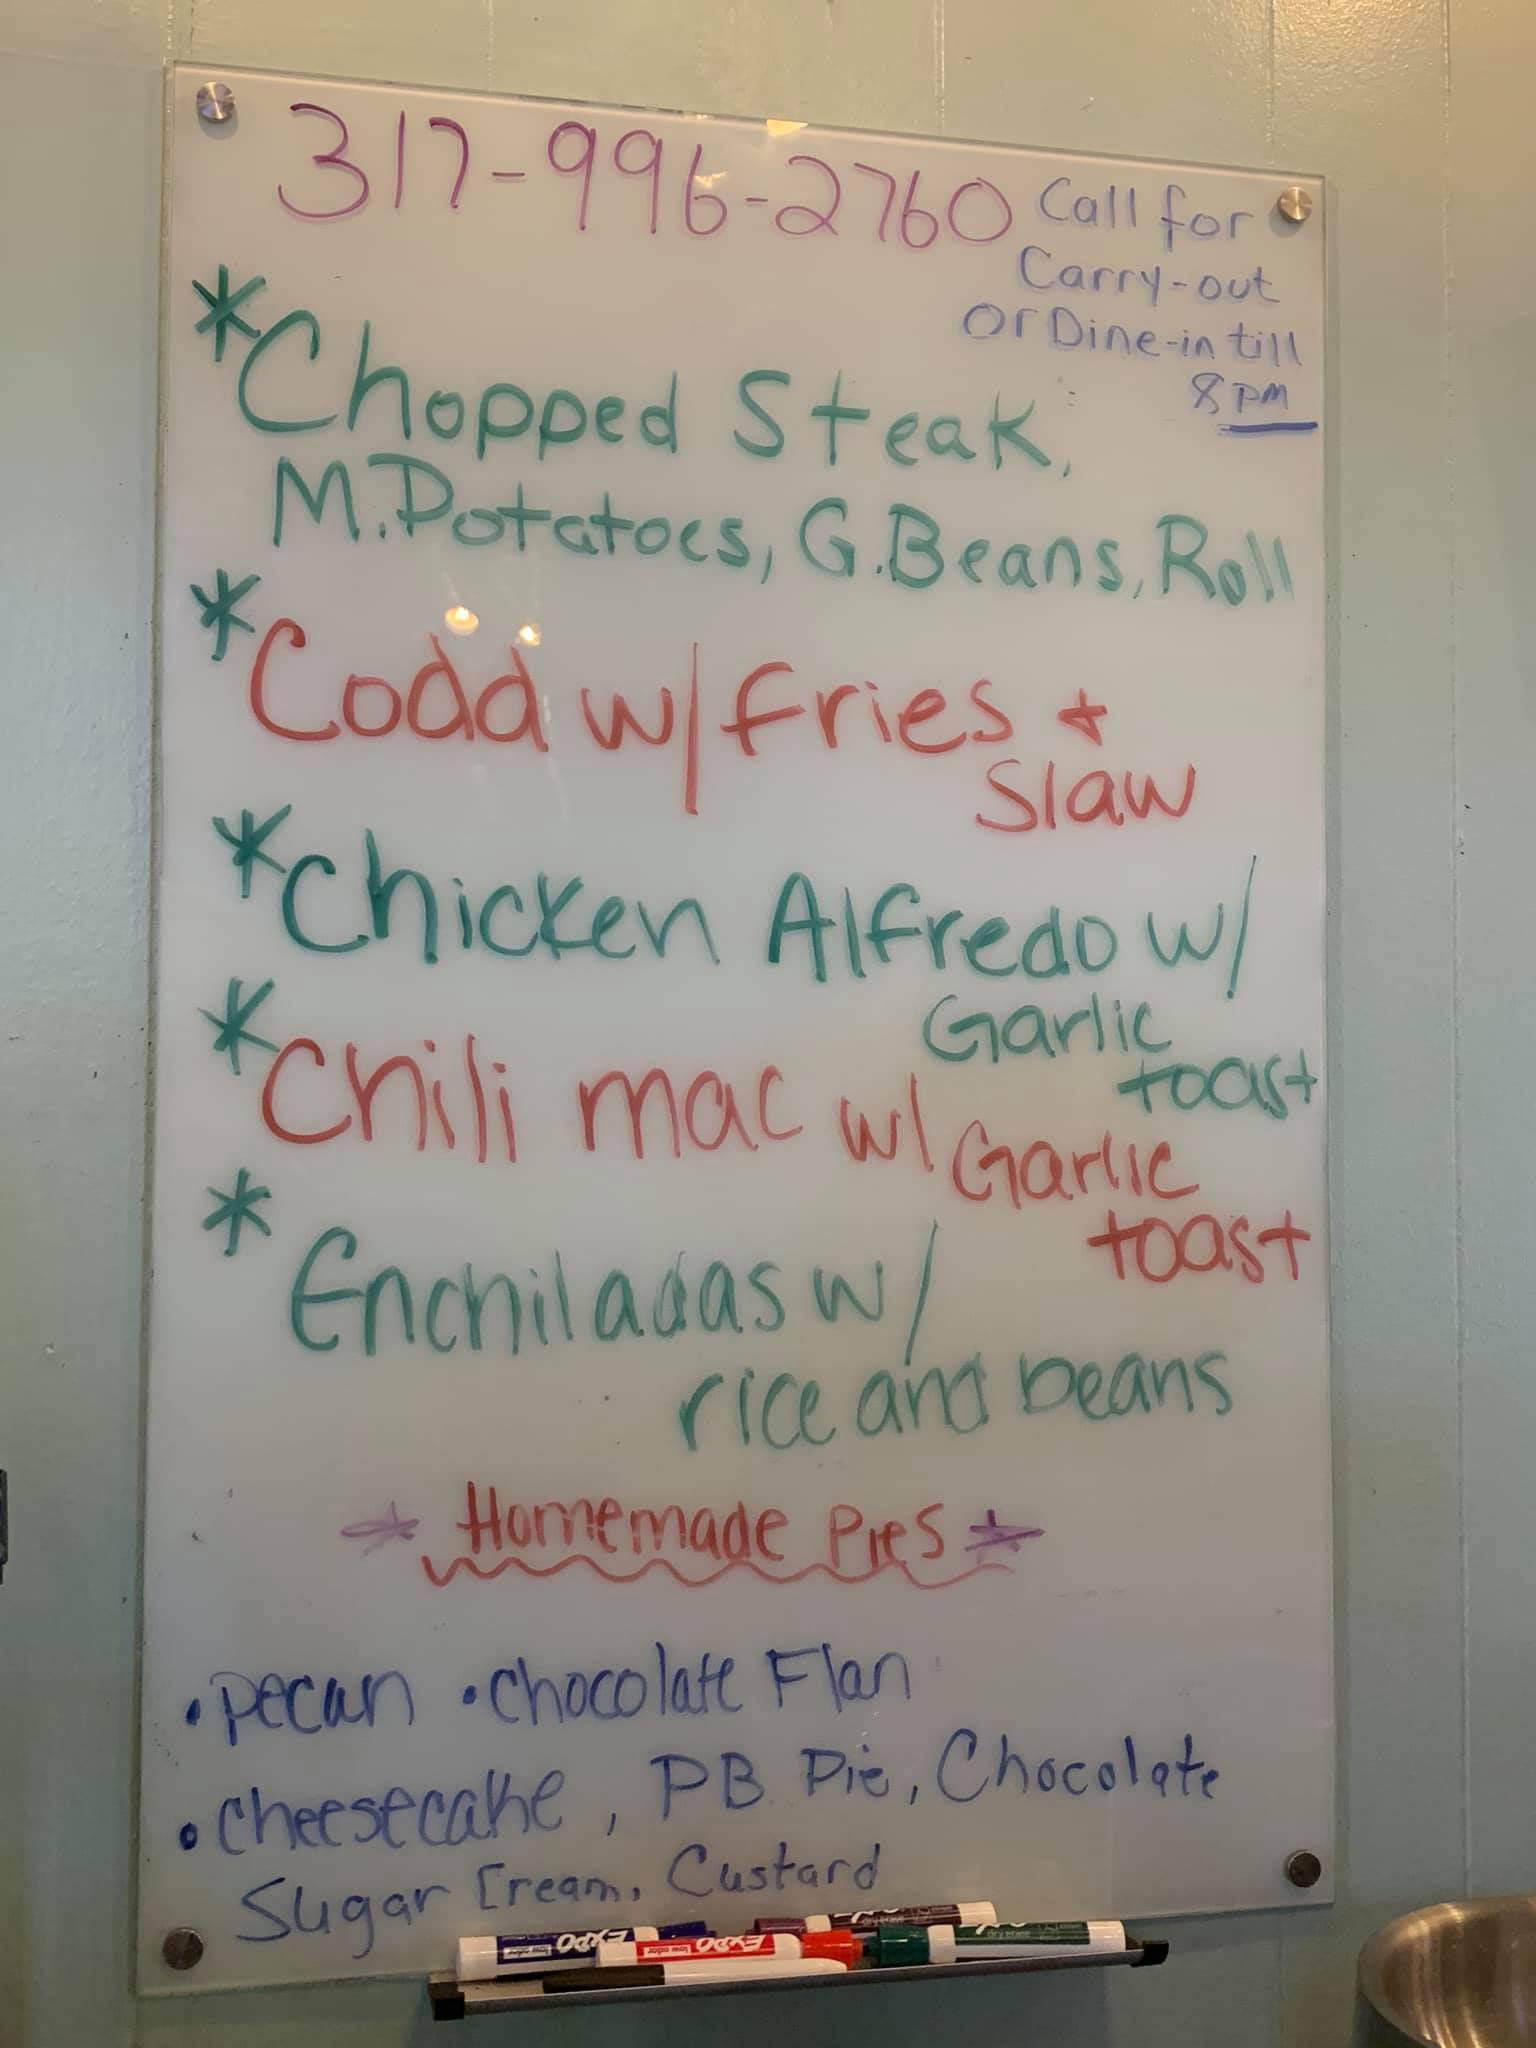 317-996-2760
Call for
Carry-out
Or Dine-in till
8 PM
*Chopped Steak,
M. Potatoes, G. Beans, Roll
*Codd w/ fries +
Slaw
*Chicken Alfredo w/
Garlic
toast
*Chili mac w/
Garlic
toast
* Enchiladas w/
rice and beans
* Homemade Pies *
• pecan • chocolate Flan
• cheesecake, PB Pie, Chocolate
Sugar Cream, Custard
EXPO low odor
EXPO low odor
dry erase
dry erase